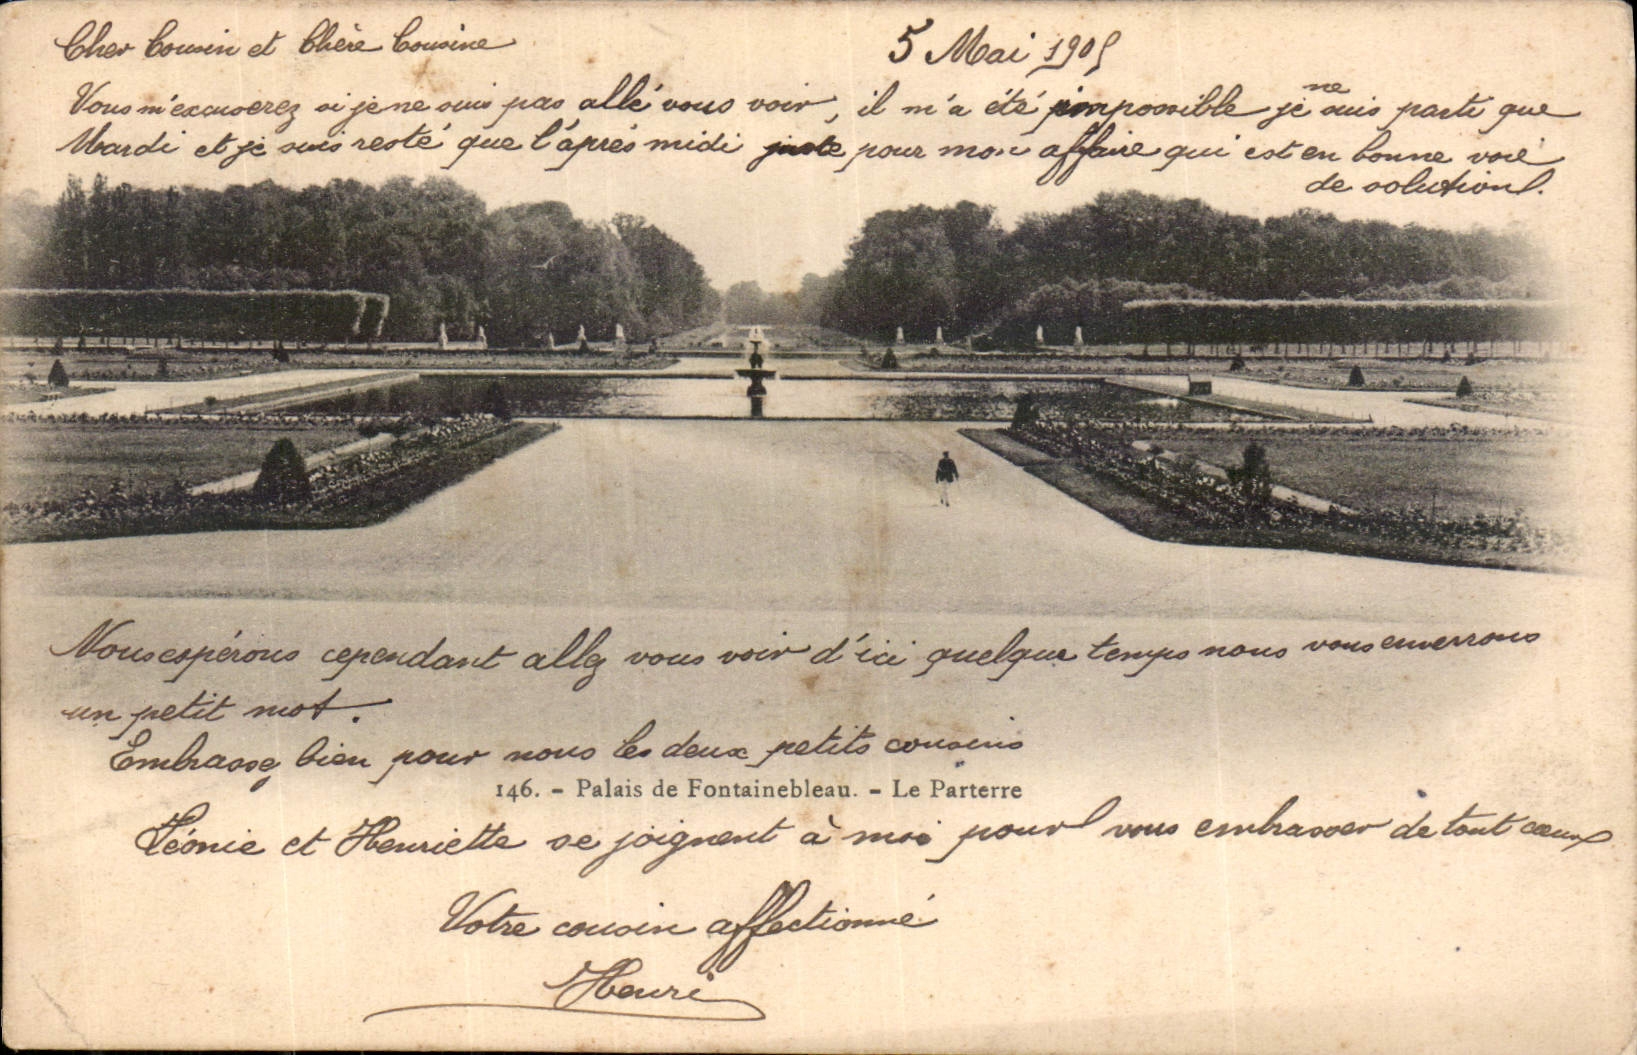 Cher Cousin et Chère Cousine
5 Mai 1905
Vous m'excuserez si je ne suis pas allé vous voir, il m'a été impossible je ne suis parti que
Mardi et je suis resté que l'après midi juste pour mon affaire qui est en bonne voie
de solution.
Nous espérons cependant allez vous voir d'ici quelque temps nous vous enverrons
un petit mot.
Embrassez bien pour nous les deux petits cousins
146. - Palais de Fontainebleau. - Le Parterre
Léonie et Henriette se joignent à moi pour vous embrasser de tout cœur
Votre cousin affectionné
Henri